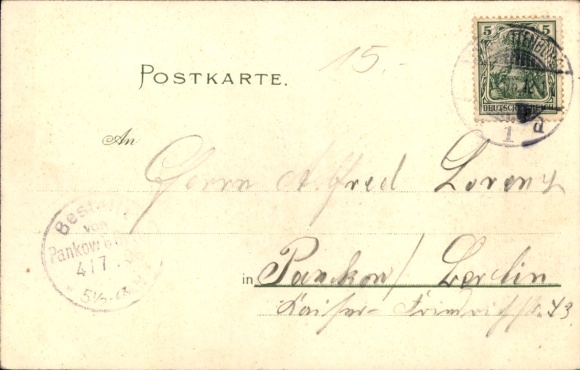 15.-
POSTKARTE.
5 5
DEUTSCHES REICH
1 d
An
Herrn Alfred Lorenz
Bestellt
von
Pankow
4/7
5½-
in Pankow / Berlin
Kaiser-Friedrichstr. 43